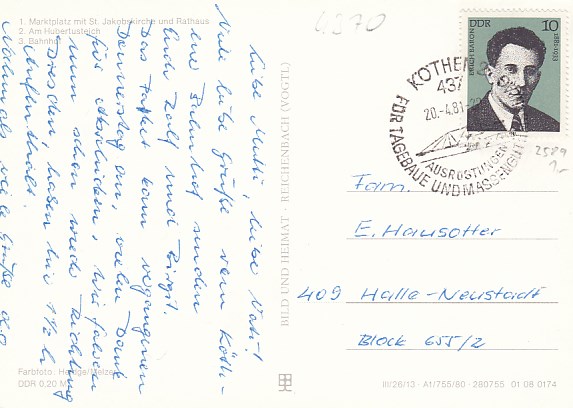 1. Marktplatz mit St. Jakobskirche und Rathaus
2. Am Hubertusteich
3. Bahnhof
4370
Liebe Mutti, liebe Vati!
Viele liebe Grüße vom Köth-
ner Bahnhof senden
Euch Rolf und Birgit.
Das Paket kam vergangenen
Donnerstag an, vielen Dank
fürs Abschicken. Wir fahren
nun schon wieder Richtung
Dresden, haben hier 1½ h
Aufenthalt.
Nochmals viele Grüße
Farbfoto:
DDR 0,20 M
BILD UND HEIMAT · REICHENBACH (VOGTL)
DDR 10
ERICH BARON 1881-1933
KÖTHEN
437
20.-4.81
AUSRÜSTUNGEN
FÜR TAGEBAUE UND MASSENGUT
2589
Fam.
E. Hausotter
409 Halle-Neustadt
Block 655/2
III/26/13 · A1/755/80 · 280755 01 08 0174